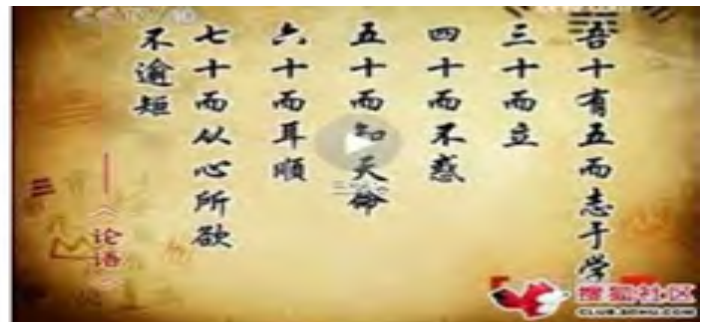 吾十有五而志于学
三十而立
四十而不惑
五十而知天命
六十而耳顺
七十而从心所欲
不逾短
——《论语》
搜狐社区
CLUB.SOHU.COM